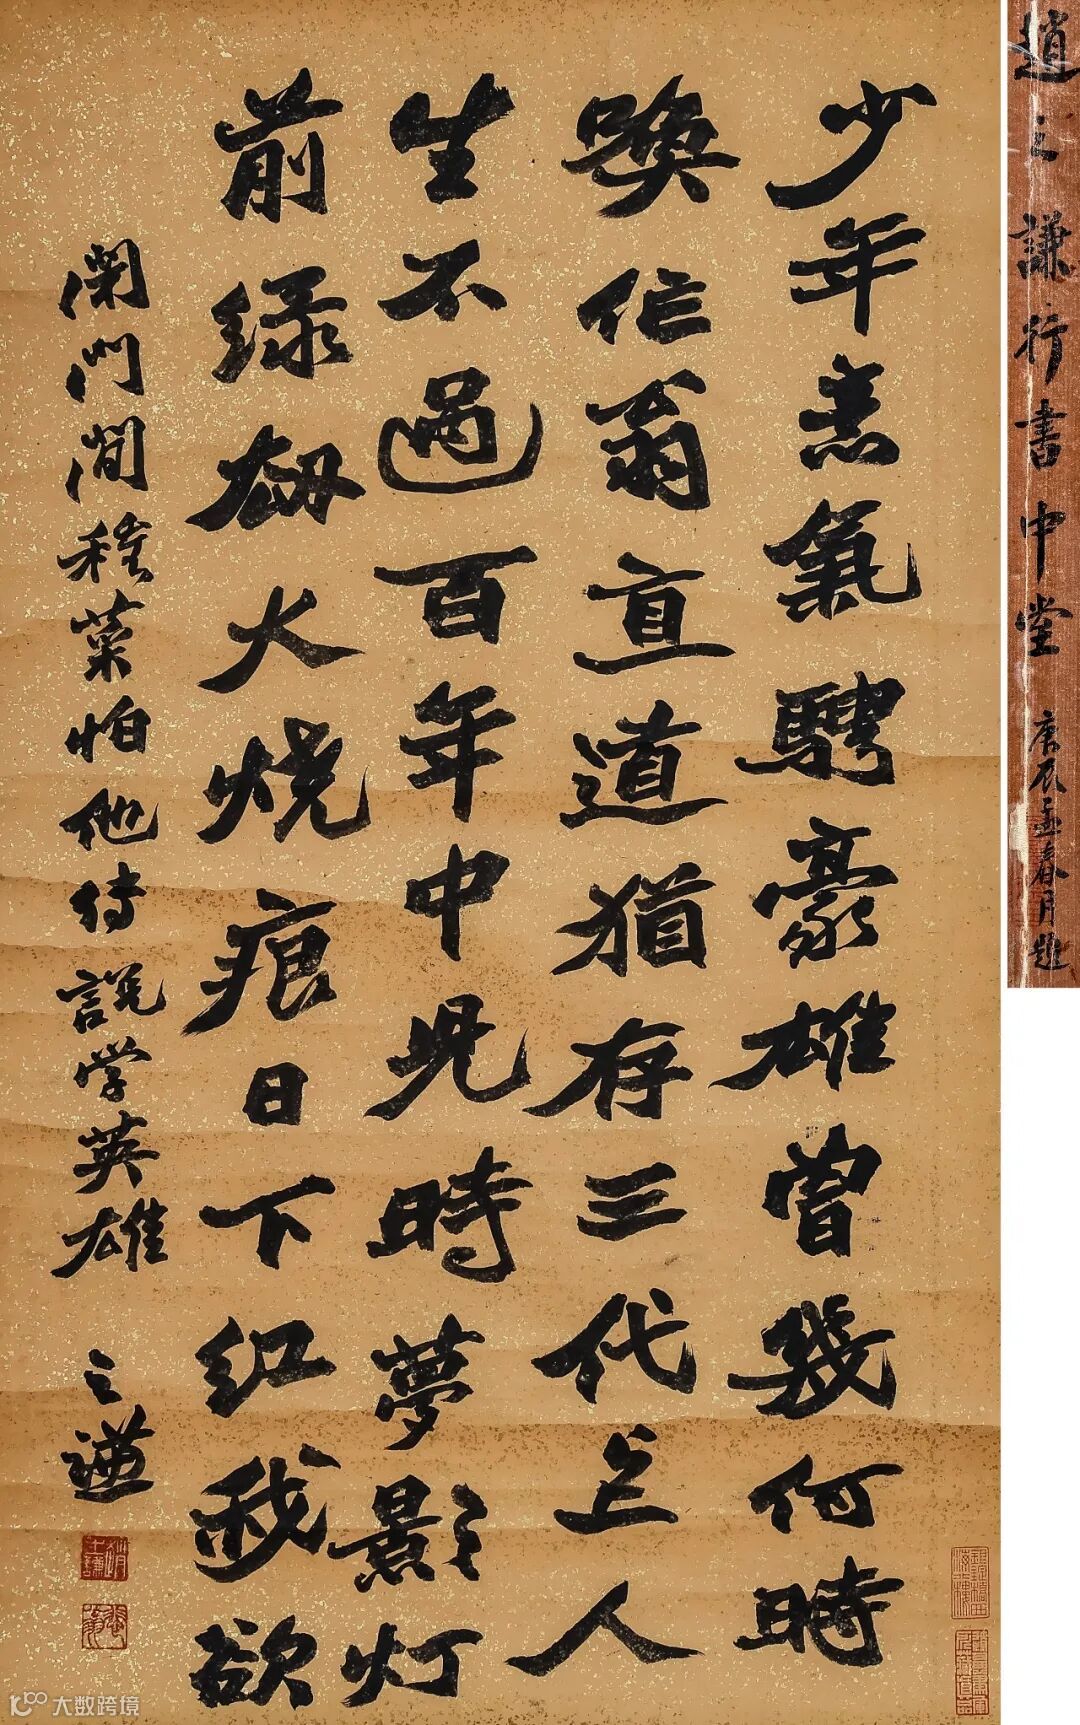 少年意氣騁豪雄曾幾何時
喚作翁直道猶存三代上人
生不過百年中兒時夢影灯
前绿劫火烧痕日下红我欲
閑門閒種菜怕他传說学英雄
之謙
趙之謙行書中堂
庚辰孟春月題
大数跨境